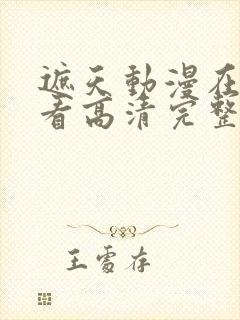 遮天動漫在
看高清完整
王雪存